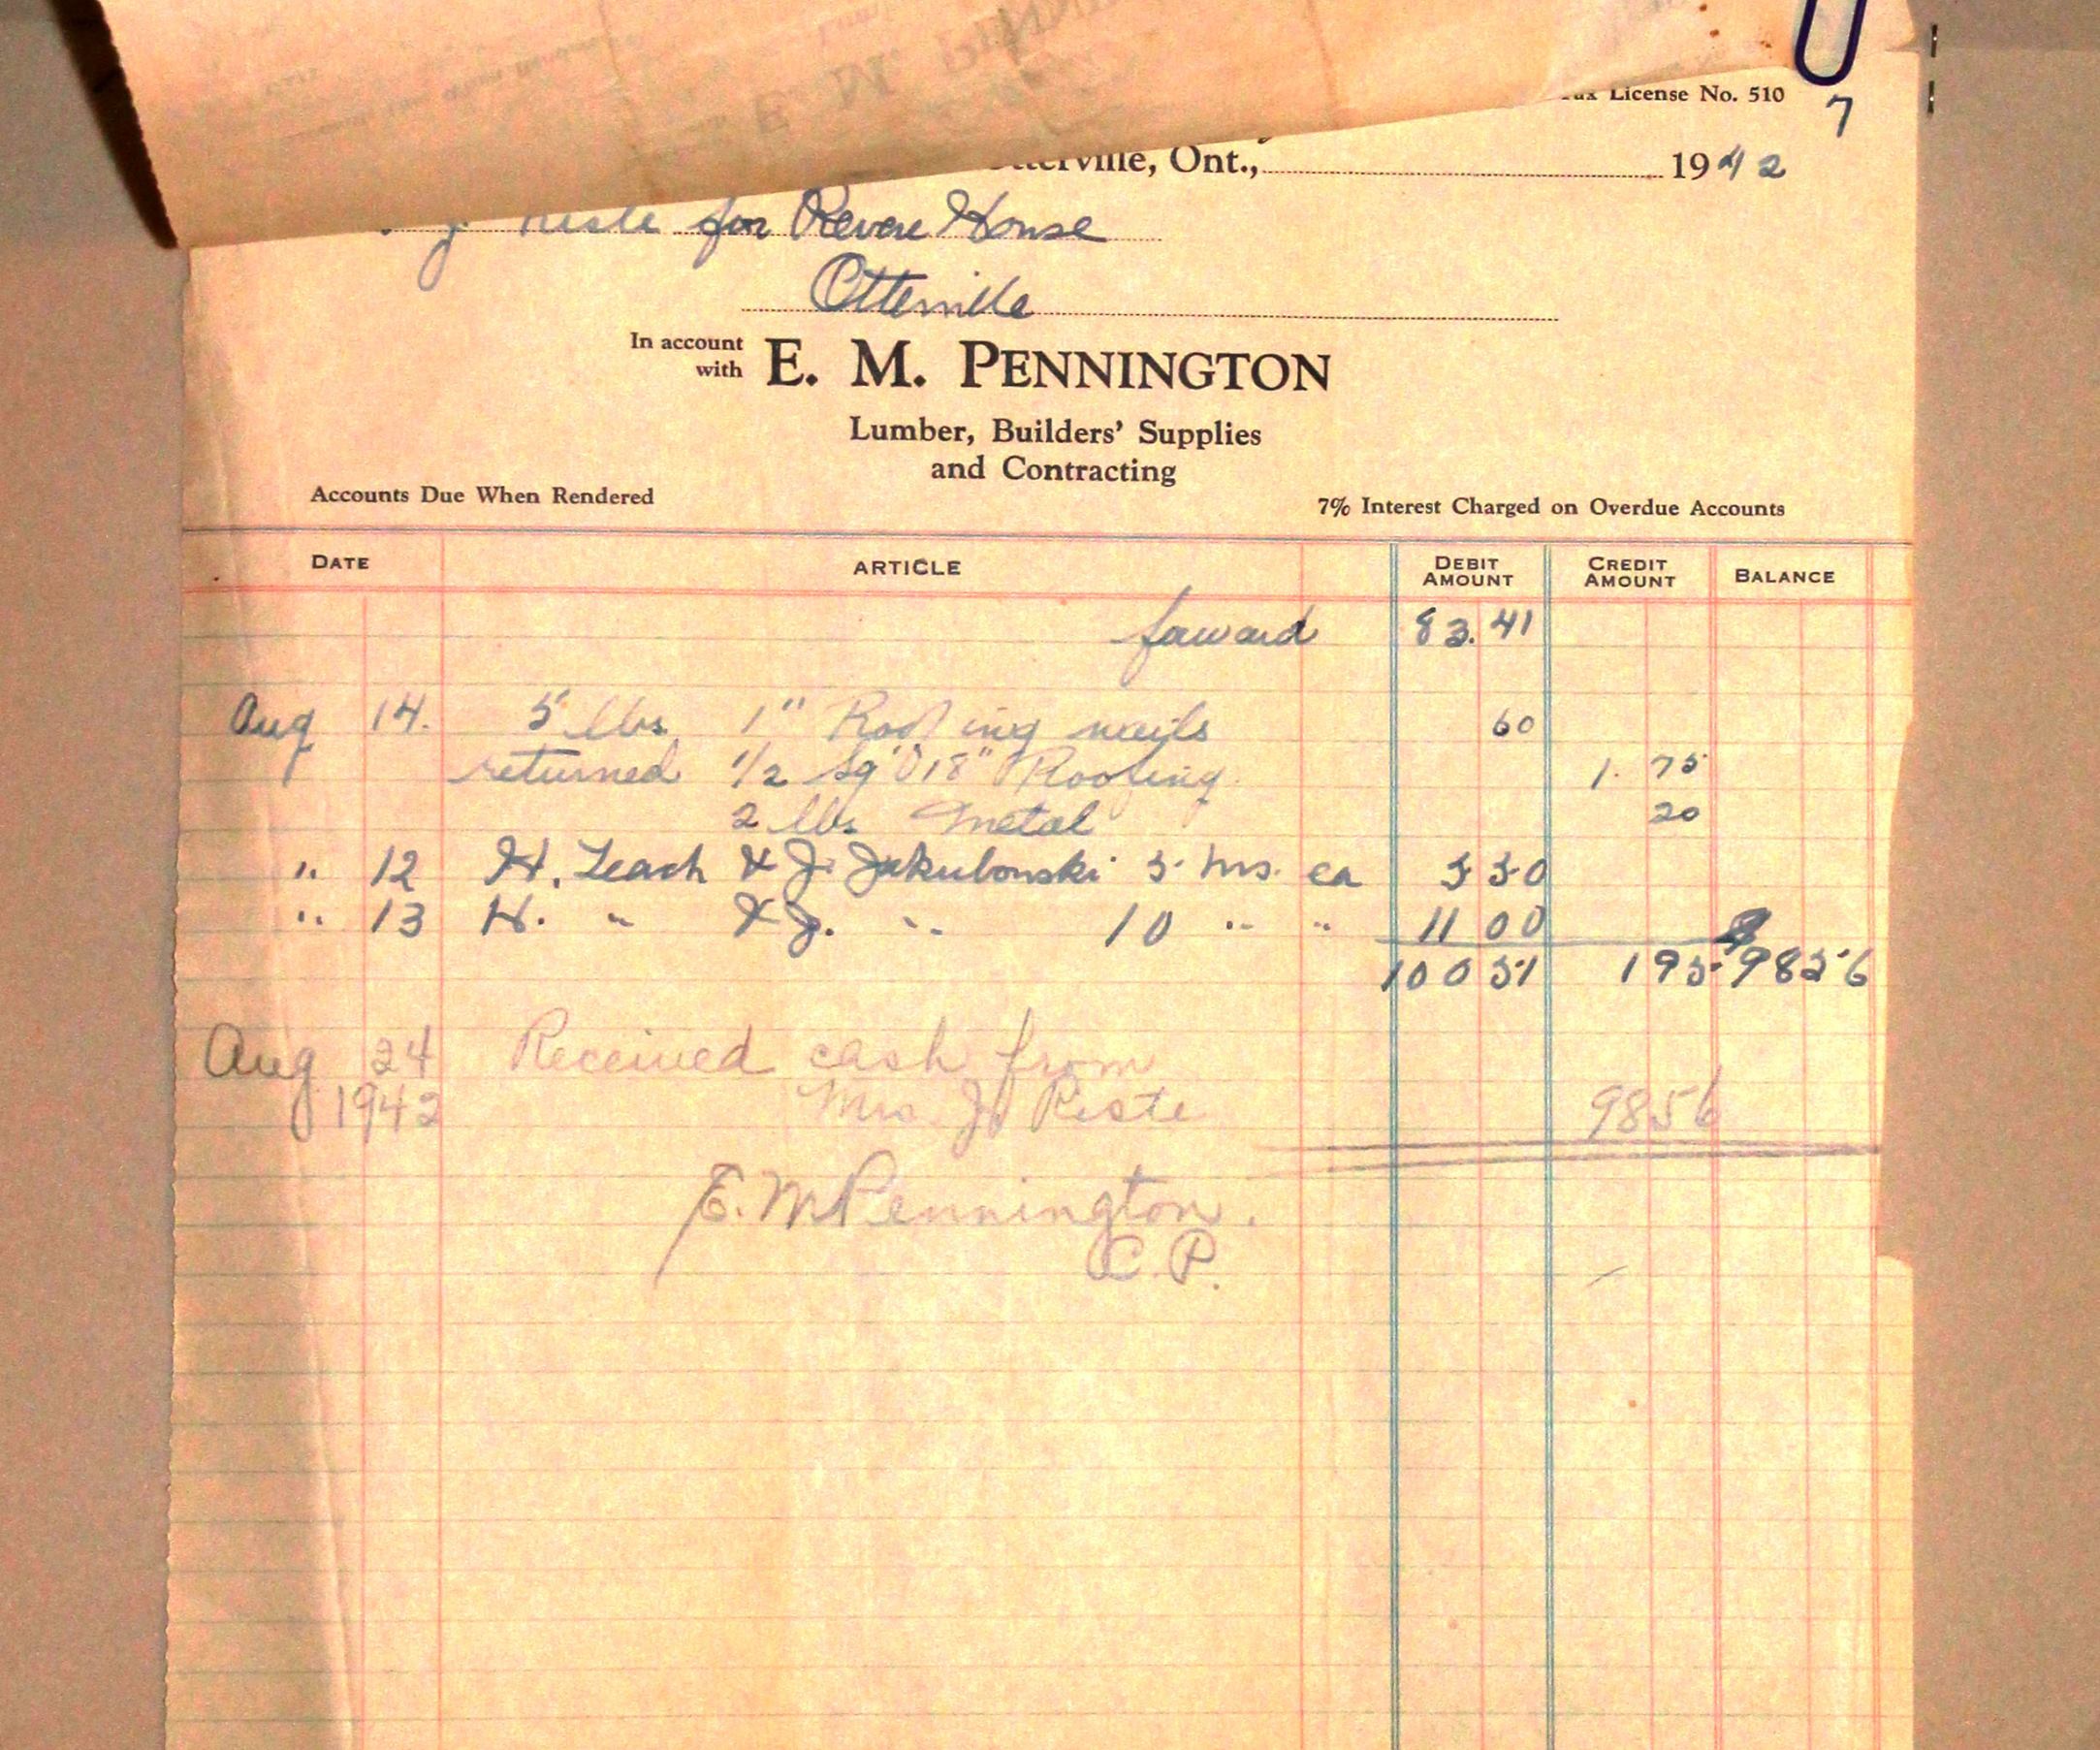 License No. 510
7
Otterville, Ont., 1942
J. Riste for Revere House
Otterville
In account with E. M. PENNINGTON
Lumber, Builders' Supplies
and Contracting
Accounts Due When Rendered
7% Interest Charged on Overdue Accounts
DATE ARTICLE DEBIT AMOUNT CREDIT AMOUNT BALANCE
faward 83.41
Aug 14. 5 lbs. 1" Roofing nails 60
returned 1/2 Sq "018" Roofing 1. 75
2 lbs Metal 20
" 12 H. Leach & J. Jakubonski 5 hrs. ea 5 50
" 13 H. " & J. " 10 " " 11 00
100 51 1 95 98 56
Aug 24 Received cash from
1942 Mrs. J. Riste 98 56
E. M Pennington.
C. P.